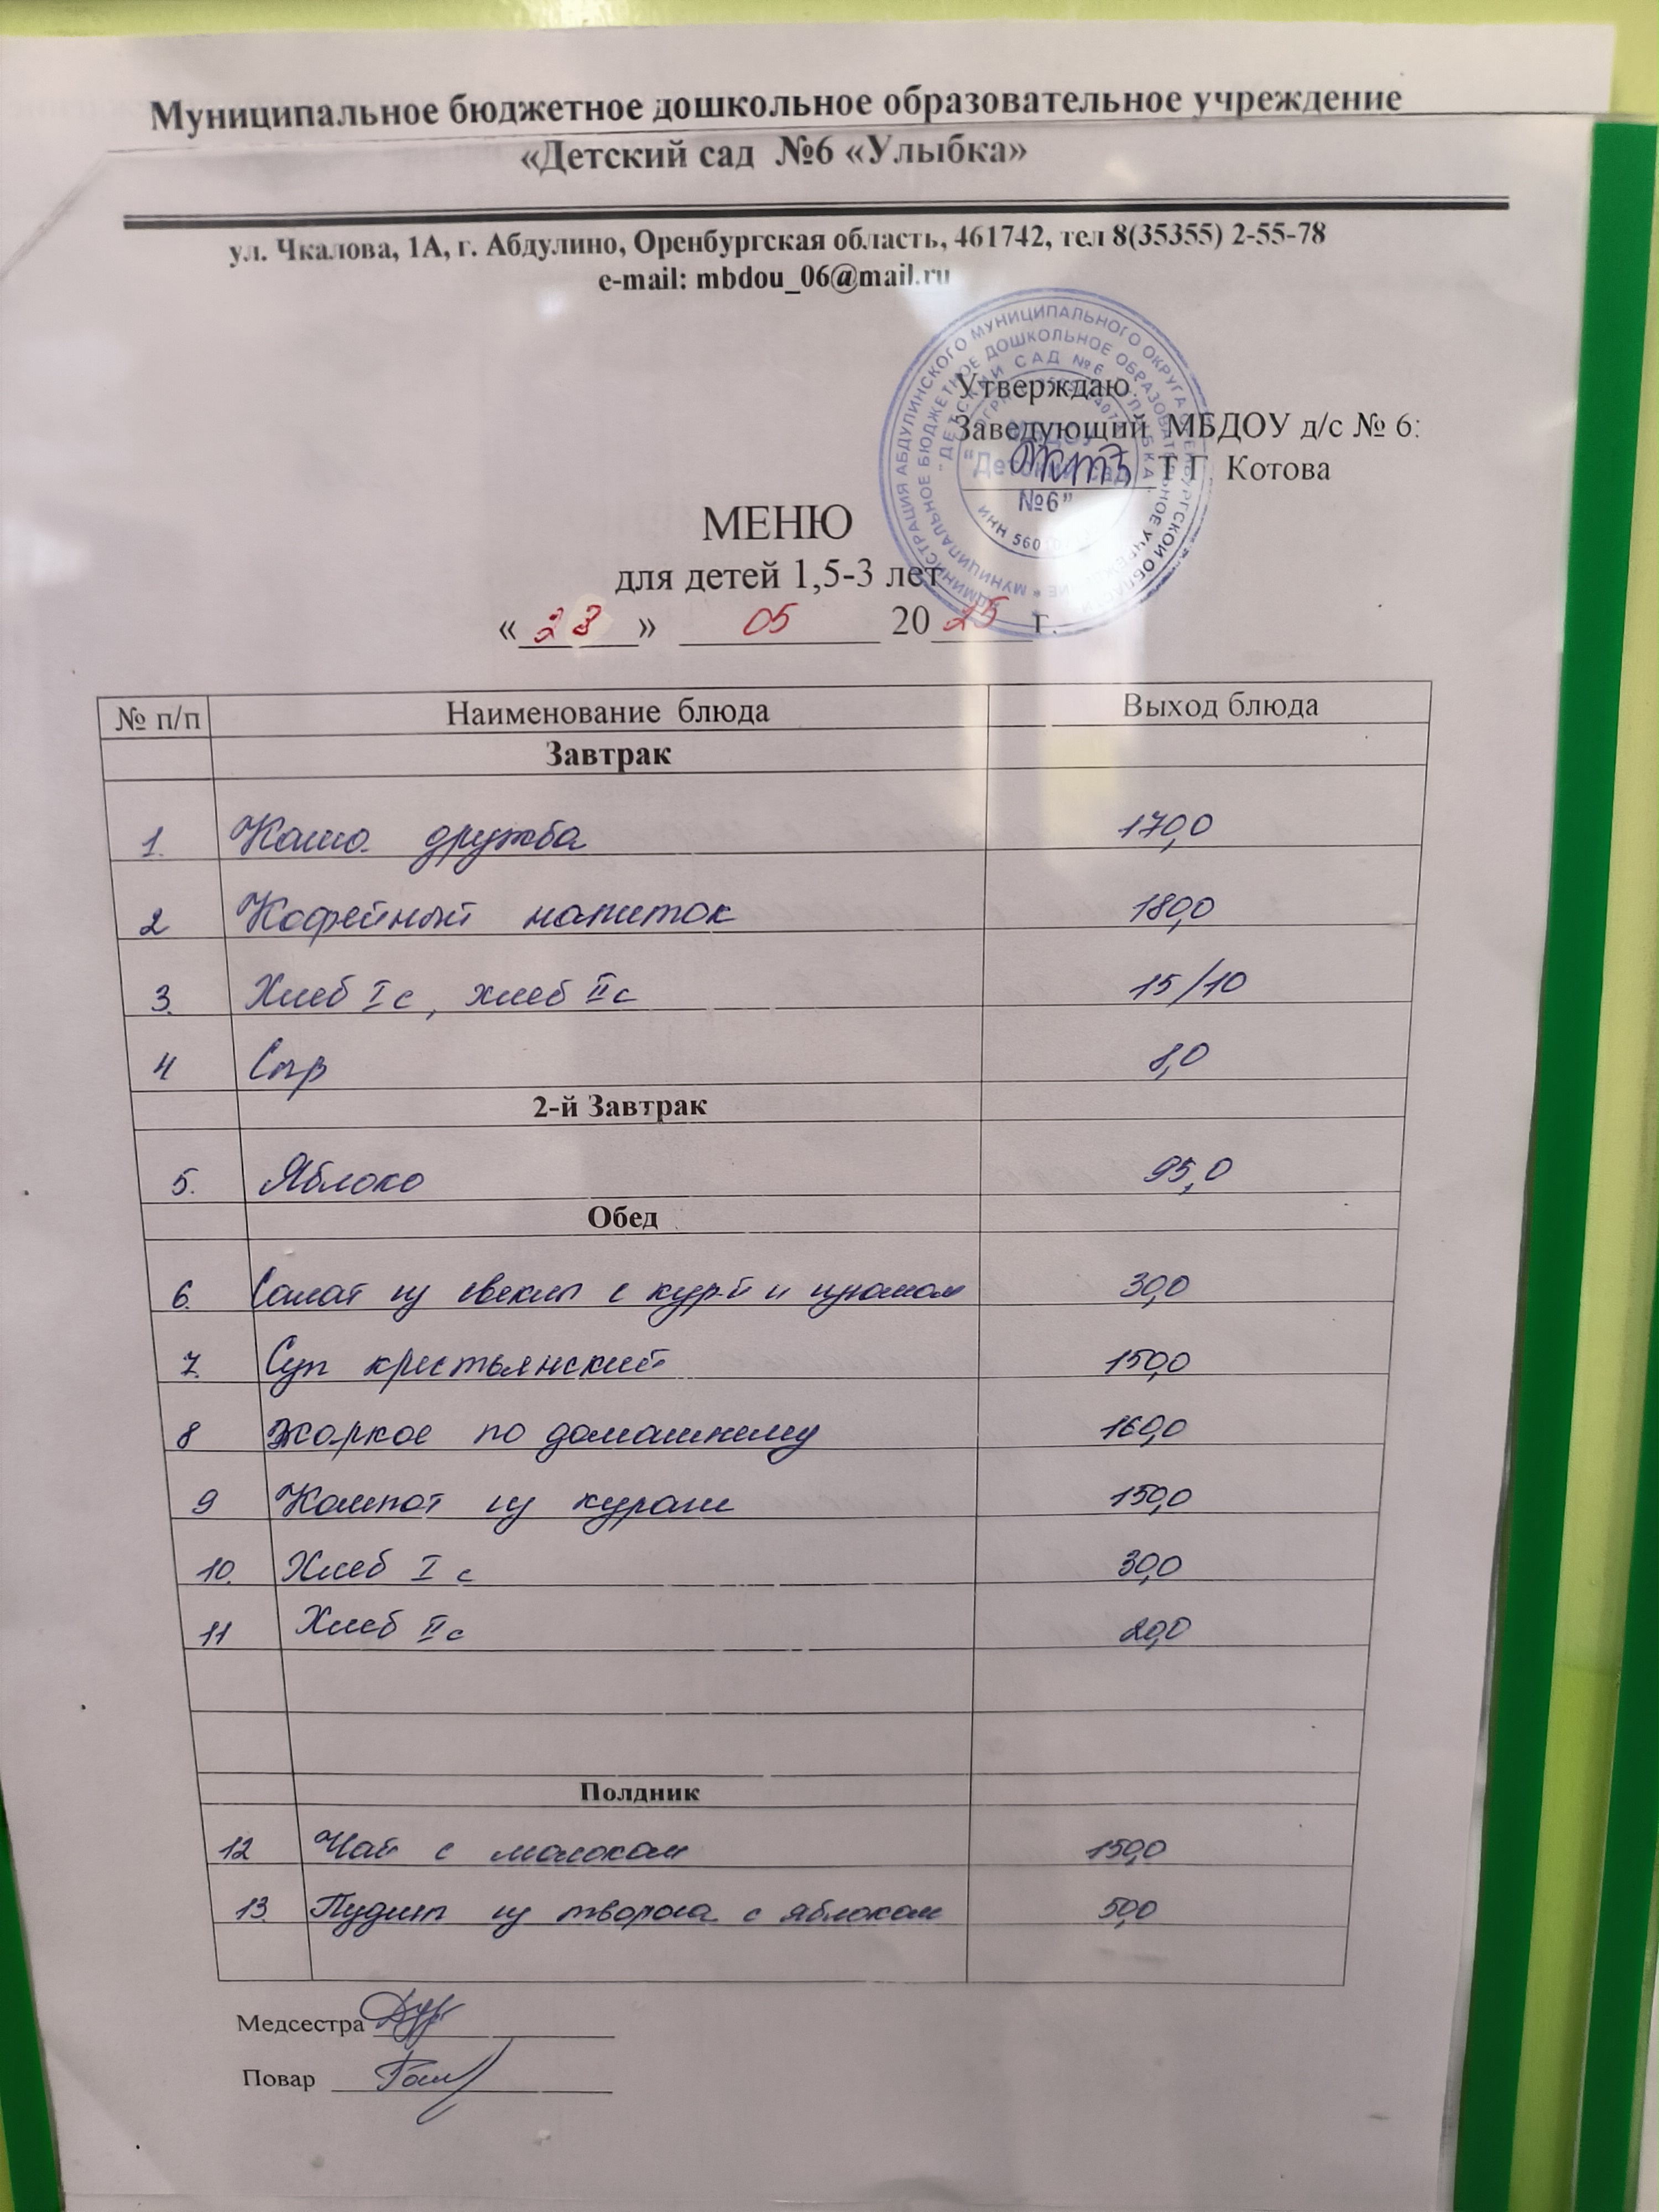 Муниципальное бюджетное дошкольное образовательное учреждение
«Детский сад №6 «Улыбка»
ул. Чкалова, 1А, г. Абдулино, Оренбургская область, 461742, тел 8(35355) 2-55-78
e-mail: mbdou_06@mail.ru
Утверждаю.
Заведующий МБДОУ д/с № 6:
Т.Г. Котова
"Детский сад
№6"
МЕНЮ
для детей 1,5-3 лет
«23» 05 2025 г.
№ п/п Наименование блюда Выход блюда
Завтрак
1. Каша дружба 170,0
2 Кофейный напиток 180,0
3. Хлеб I с, хлеб II с 15/10
4 Сыр 8,0
2-й Завтрак
5. Яблоко 95,0
Обед
6. Салат из свеклы с кур-й и изюмом 30,0
7. Суп крестьянский 150,0
8 Жаркое по домашнему 160,0
9 Компот из кураги 150,0
10. Хлеб I с 30,0
11 Хлеб II с 20,0
Полдник
12 Чай с молоком 150,0
13. Пудинг из творога с яблоком 50,0
Медсестра
Повар